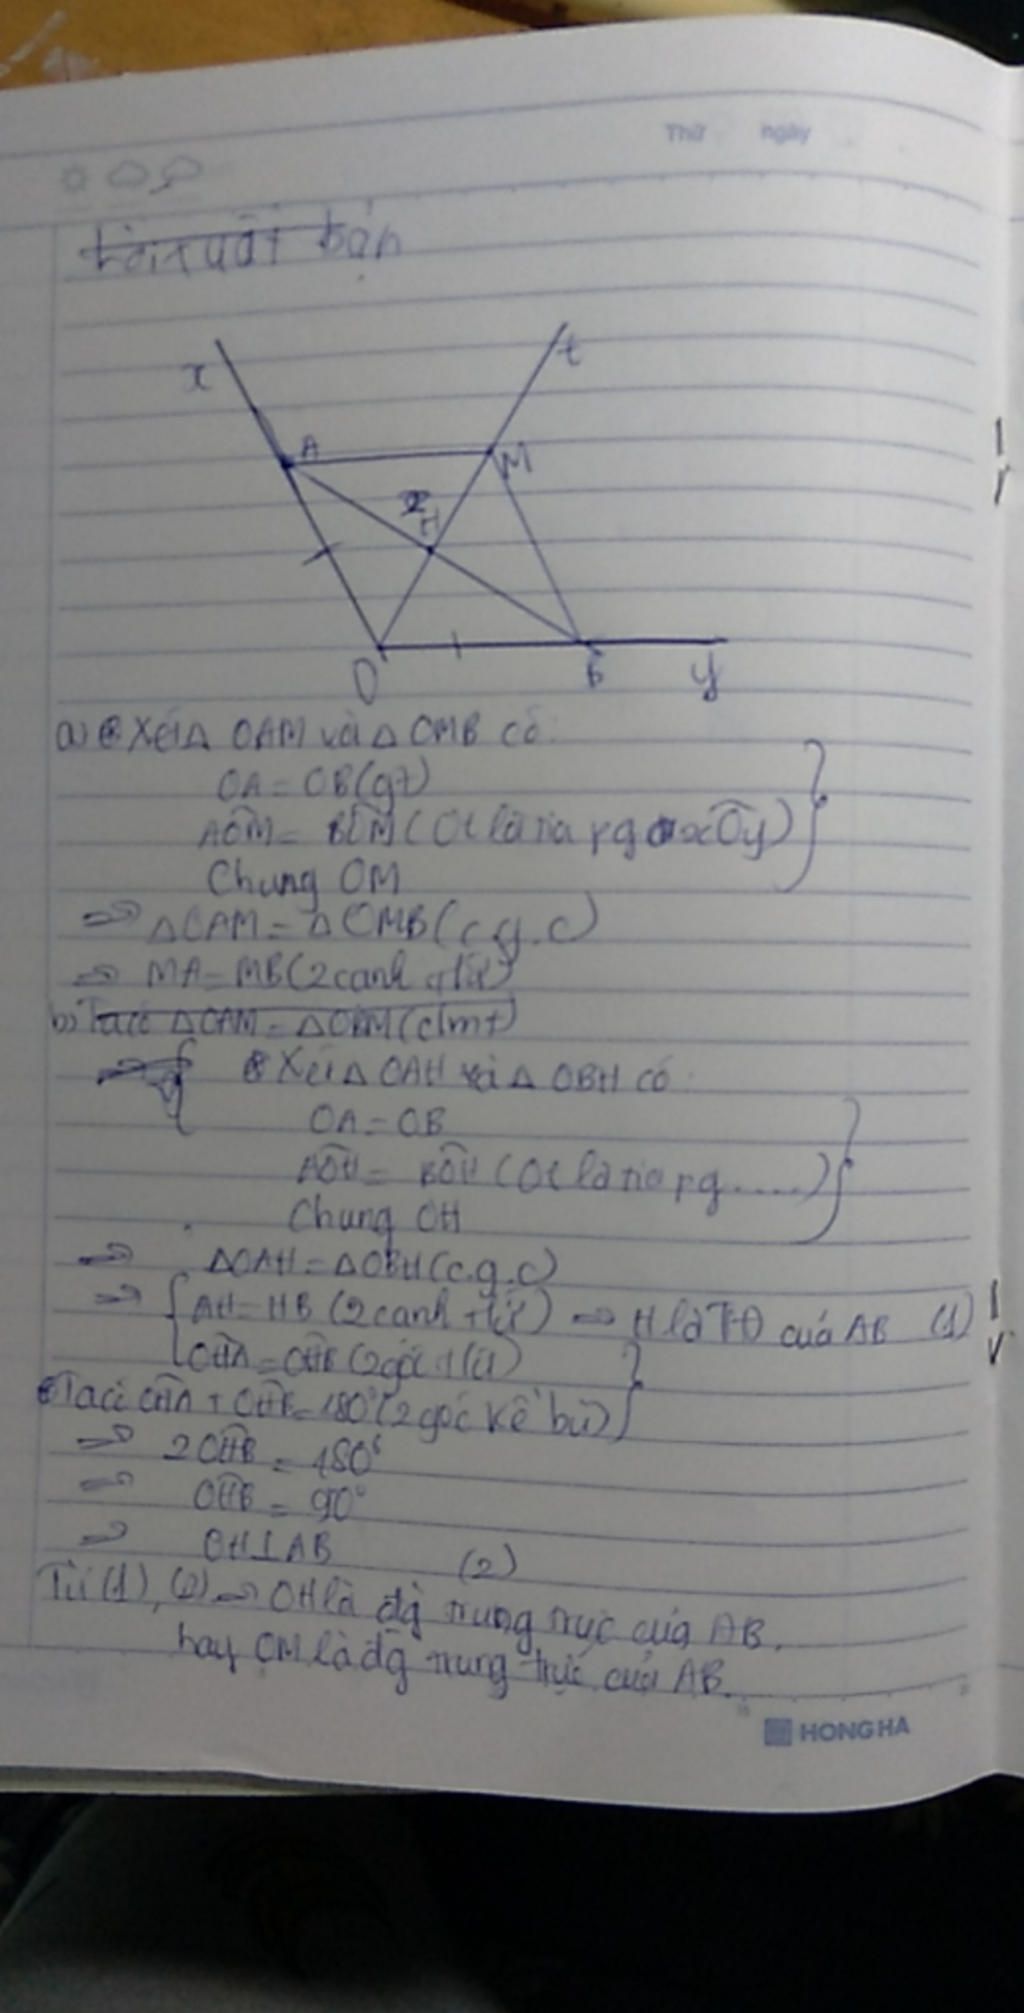 Thứ ngày
bản
x
t
A
M
H
O
B
y
a) Xét △ OAM và △ OMB có:
OA = OB (gt)
AÔM = BÔM (Ot là tia pg xÔy)
Chung OM
=> △OAM = △OMB (c.g.c)
=> MA = MB (2 cạnh tứ)
b) Ta có △OAM = △OBM (cmt)
Xét △ OAH và △ OBH có:
OA = OB
AÔH = BÔH (Ot là tia pg ......)
Chung OH
=> △OAH = △OBH (c.g.c)
=> { AH = HB (2 cạnh tứ) => H là TĐ của AB (1)
OĤA = OĤB (2 góc tứ)
Ta có OĤA + OĤB = 180° (2 góc kề bù)
=> 2OĤB = 180°
=> OĤB = 90°
=> OH ⊥ AB (2)
Từ (1), (2) => OH là đg trung trực của AB.
hay OM là đg trung trực của AB.
HONG HA